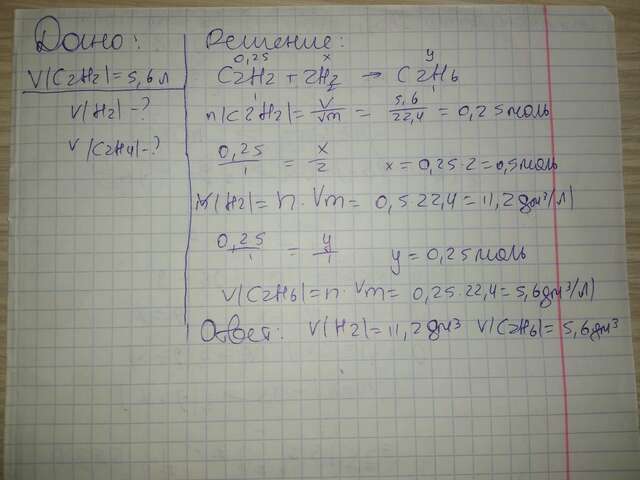 Дано:
V(C2H2)=5,6л
V(H2)-?
V(C2H4)-?
Решение:
0,25 x y
C2H2 + 2H2 → C2H6
1 1
n(C2H2)= V/Vm = 5,6/22,4 = 0,25 моль
0,25/1 = x/2 x = 0,25·2=0,5моль
V(H2)= n·Vm= 0,5·22,4=11,2дм³/л)
0,25/1 = y/1 y=0,25моль
V(C2H6)=n·Vm= 0,25·22,4=5,6дм³/л)
Ответ: V(H2)=11,2дм³ V(C2H6)=5,6дм³